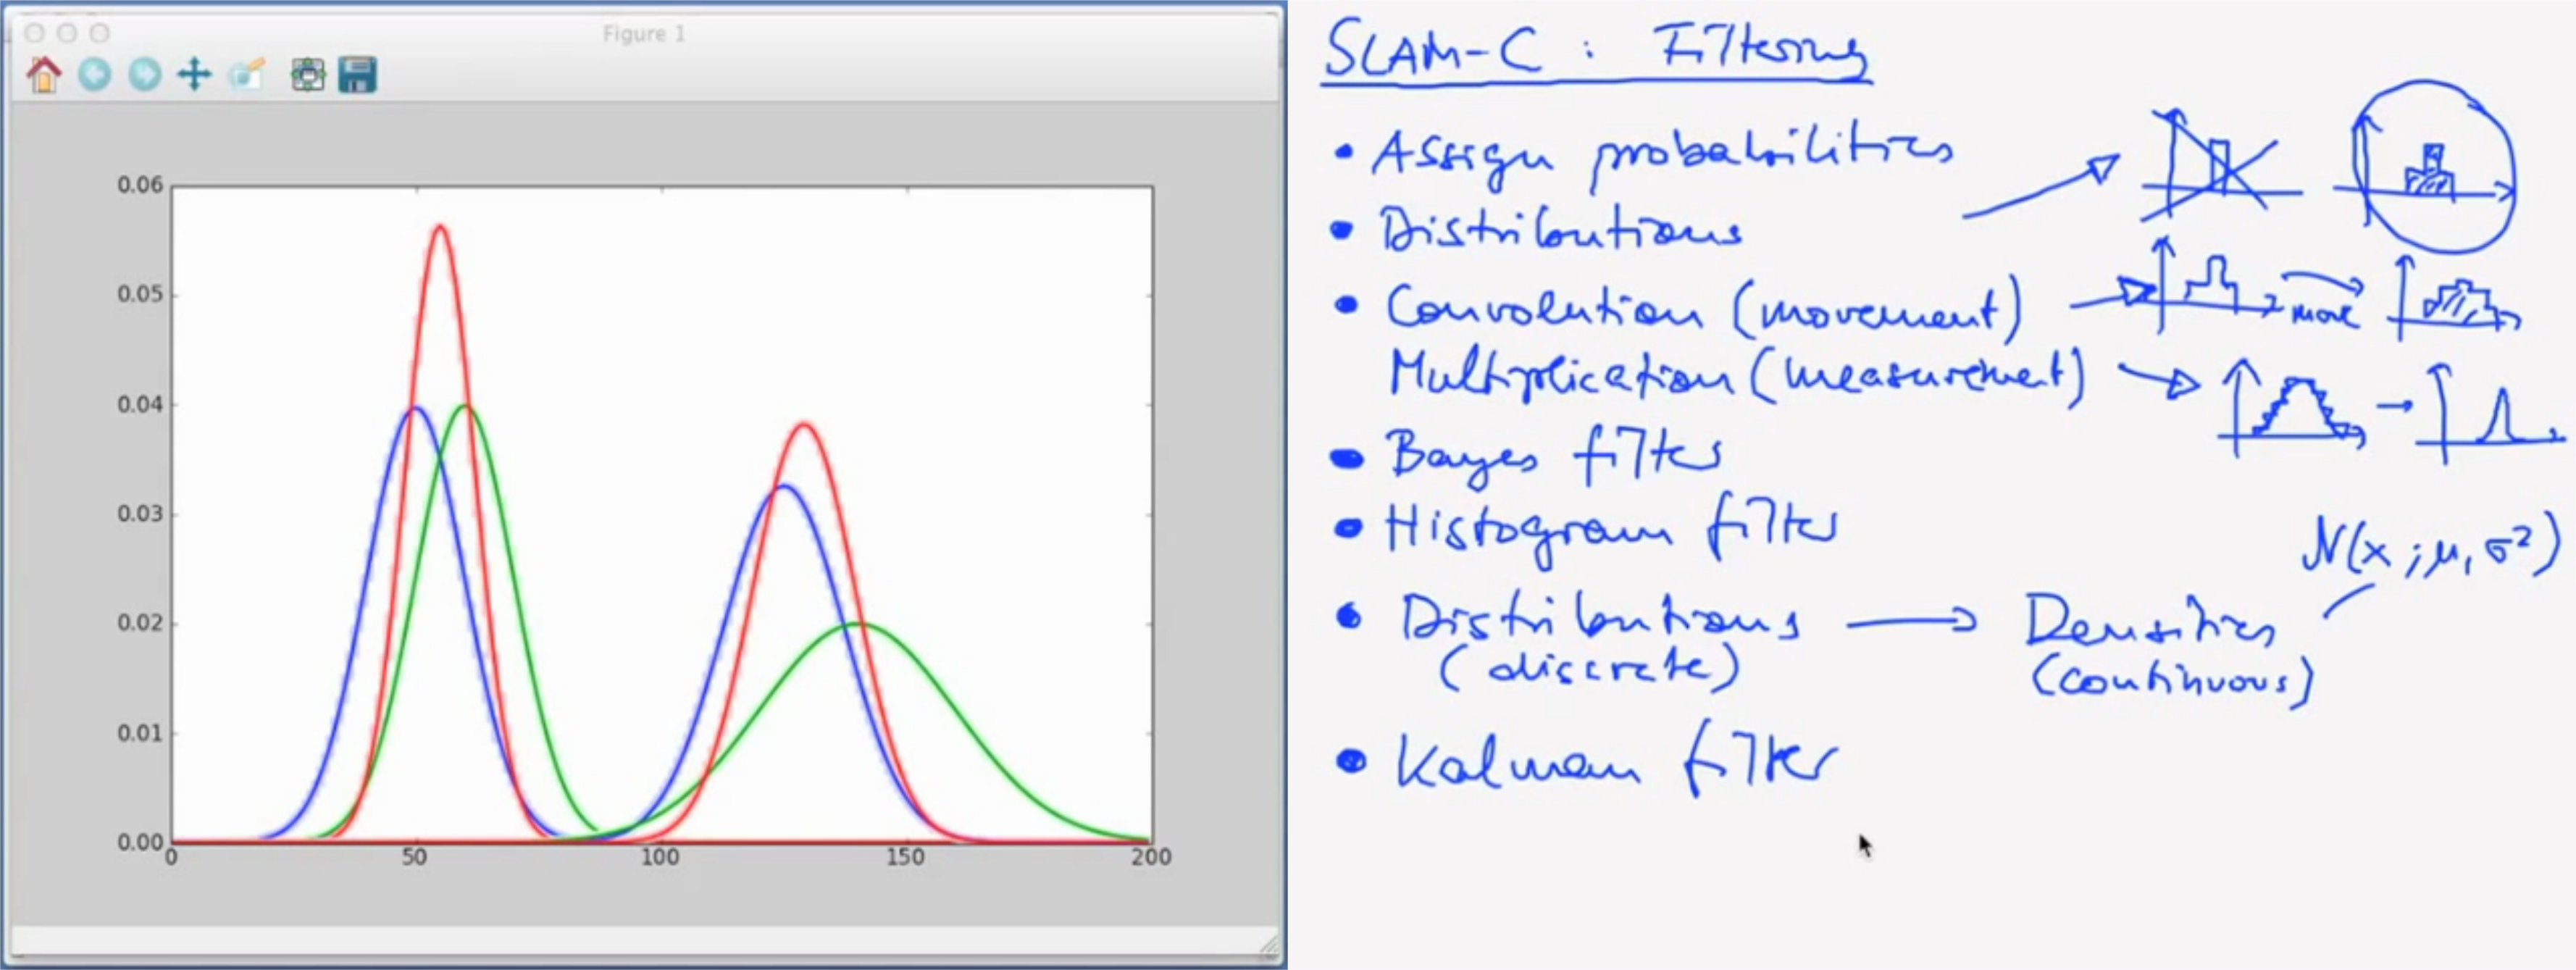 Figure 1
0.06
0.05
0.04
0.03
0.02
0.01
0.00
0 50 100 150 200
SLAM-C : Filtering
• Assign probabilities
• Distributions
• Convolution (movement)
move
Multiplication (measurement)
• Bayes filter
• Histogram filter
N(x ; μ, σ²)
• Distributions → Densities
(discrete) (continuous)
• Kalman filter